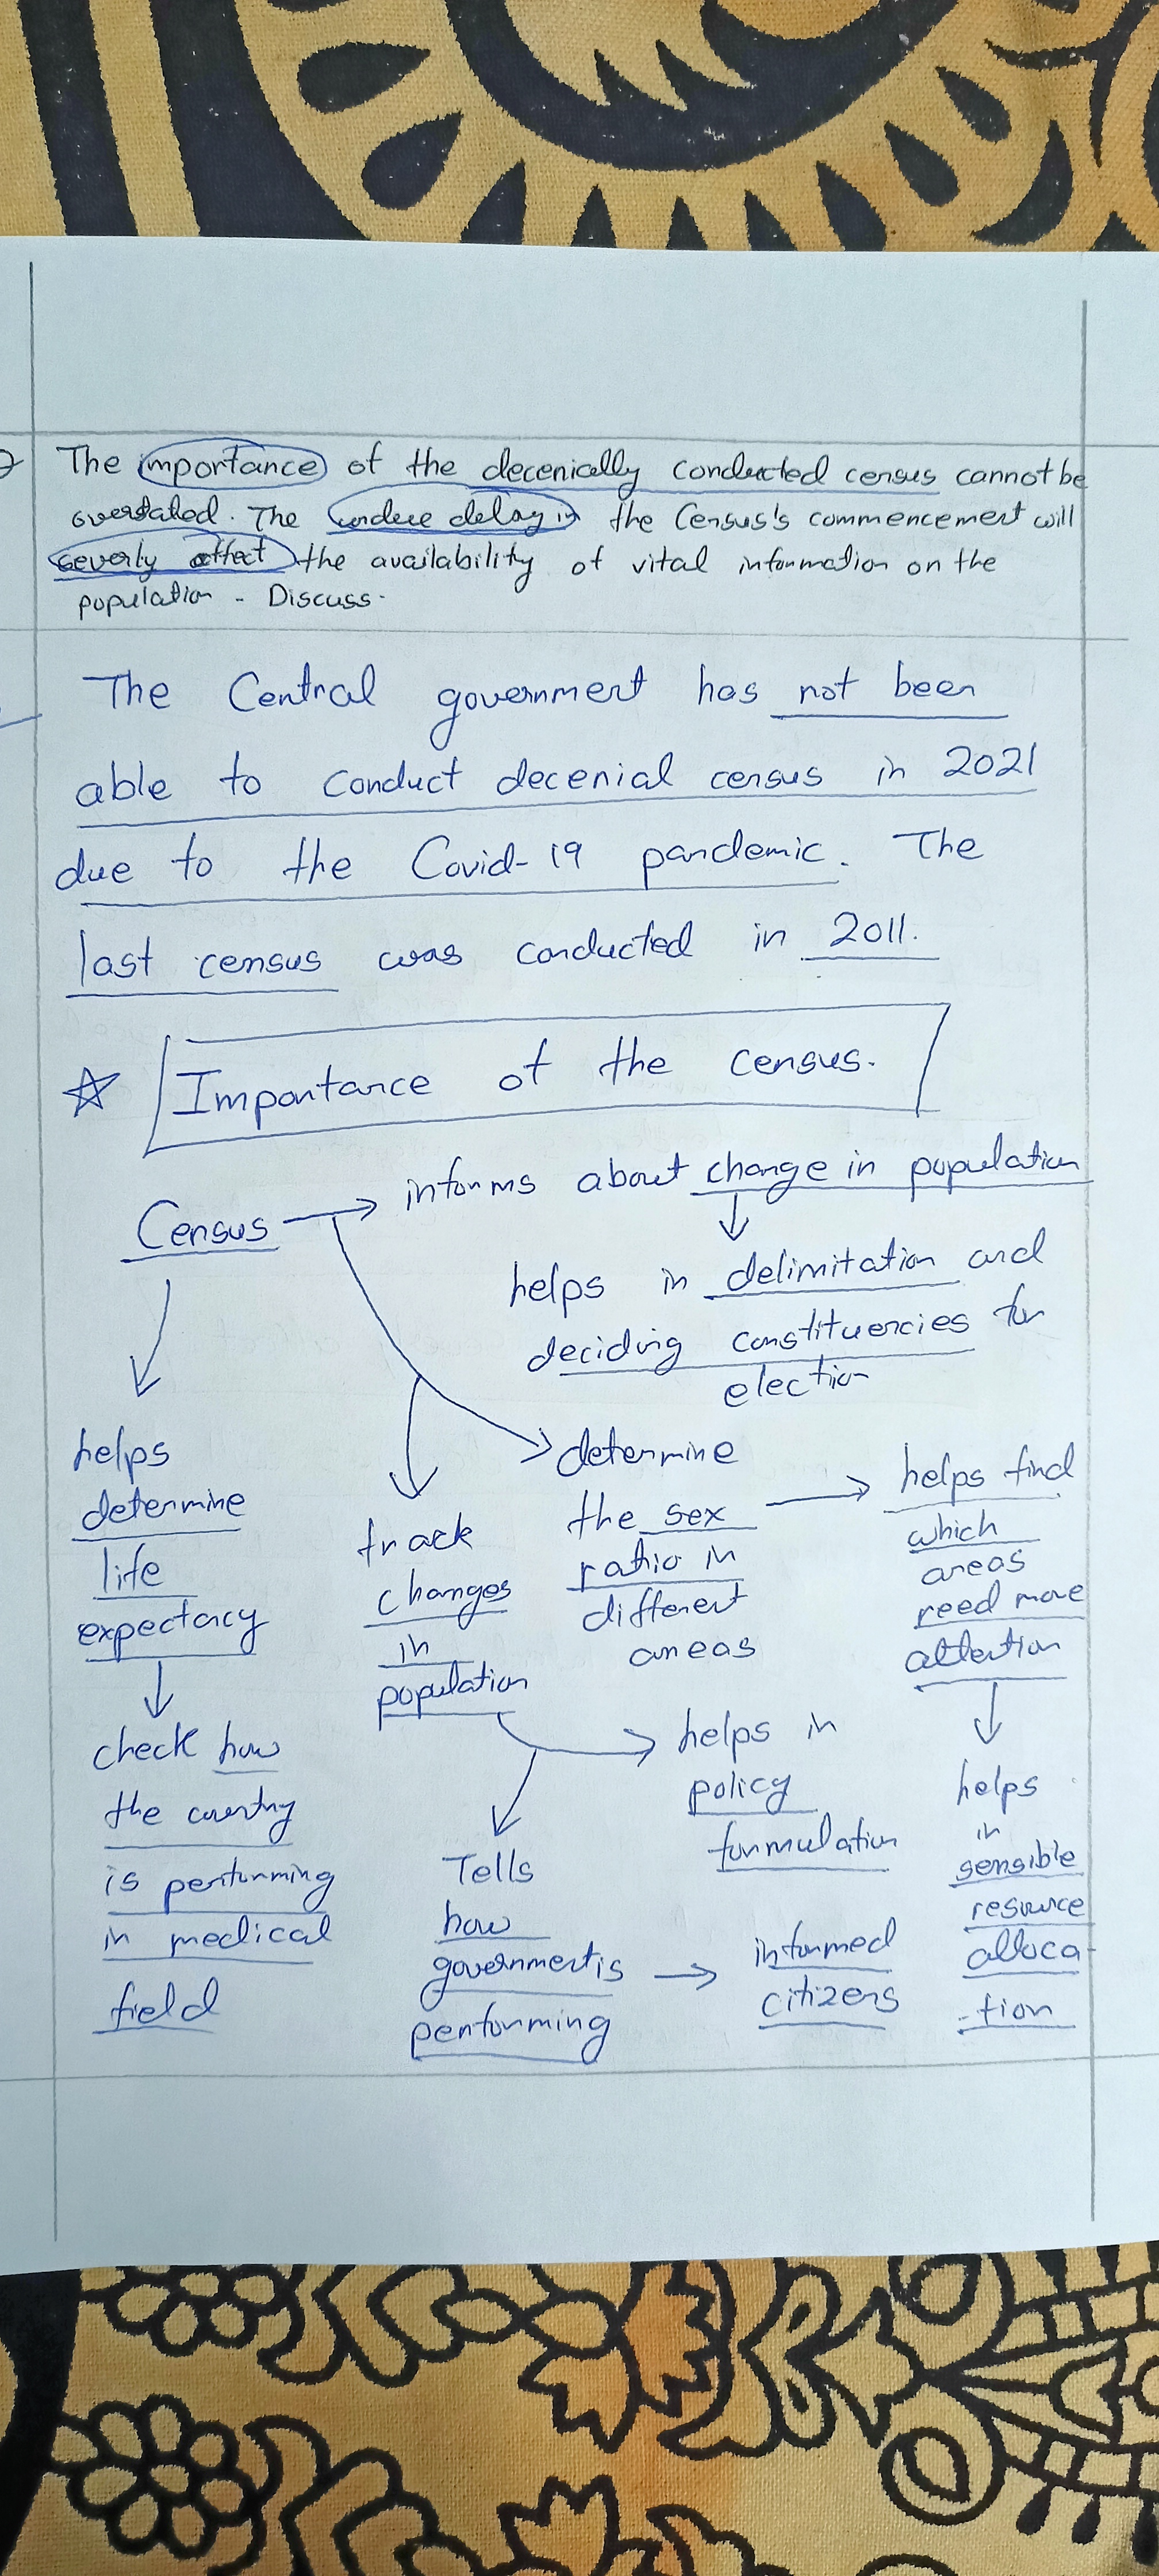 The importance of the decenically conducted census cannot be
overstated. The undue delay in the Census's commencement will
severly affect the availability of vital information on the
population - Discuss.
The Central government has not been
able to conduct decenial census in 2021
due to the Covid-19 pandemic. The
last census was conducted in 2011.
Importance of the census.
Census → informs about change in population
↓
helps in delimitation and
deciding constituencies for
election
helps
determine
life
expectacy
↓
check how
the country
is performing
in medical
field
track
changes
in
population
Tells
how
government is
performing
→ informed
citizens
helps in
policy
formulation
determine
the sex
ratio in
different
areas
→ helps find
which
areas
need more
attention
↓
helps
in
sensible
resource
alloca-
-tion